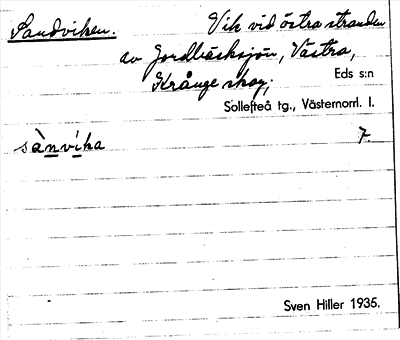 Sandviken. Vik vid östra stranden
av Jordbäcksjön, Västra,
Krånge skog; Eds s:n
Sollefteå tg., Västernorrl. l.
sànvika 7.
Sven Hiller 1935.